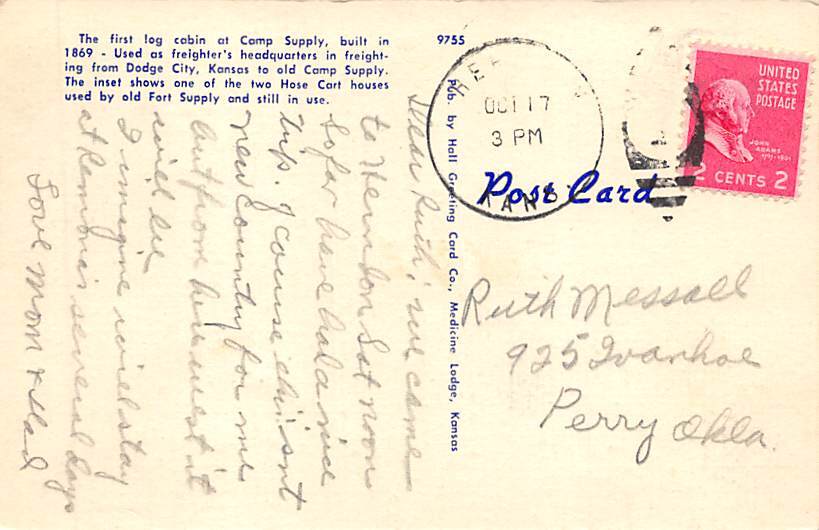 The first log cabin at Camp Supply, built in
1869 - Used as freighter's headquarters in freight-
ing from Dodge City, Kansas to old Camp Supply.
The inset shows one of the two Hose Cart houses
used by old Fort Supply and still in use.
9755
Pub. by Hall Greeting Card Co., Medicine Lodge, Kansas
OCT 17
3 PM
KANS
UNITED
STATES
POSTAGE
JOHN
ADAMS
1797-1801
2 CENTS 2
Post Card
Dear Ruth; we came
to Herndon Sat noon
So far have had a nice
trip. Of course this isnt
new country for me
but from here west it
will be
I imagine will stay
at Ramona's several days
Love Mom & Dad
Ruth Messall
925 Ivanhoe
Perry Okla.